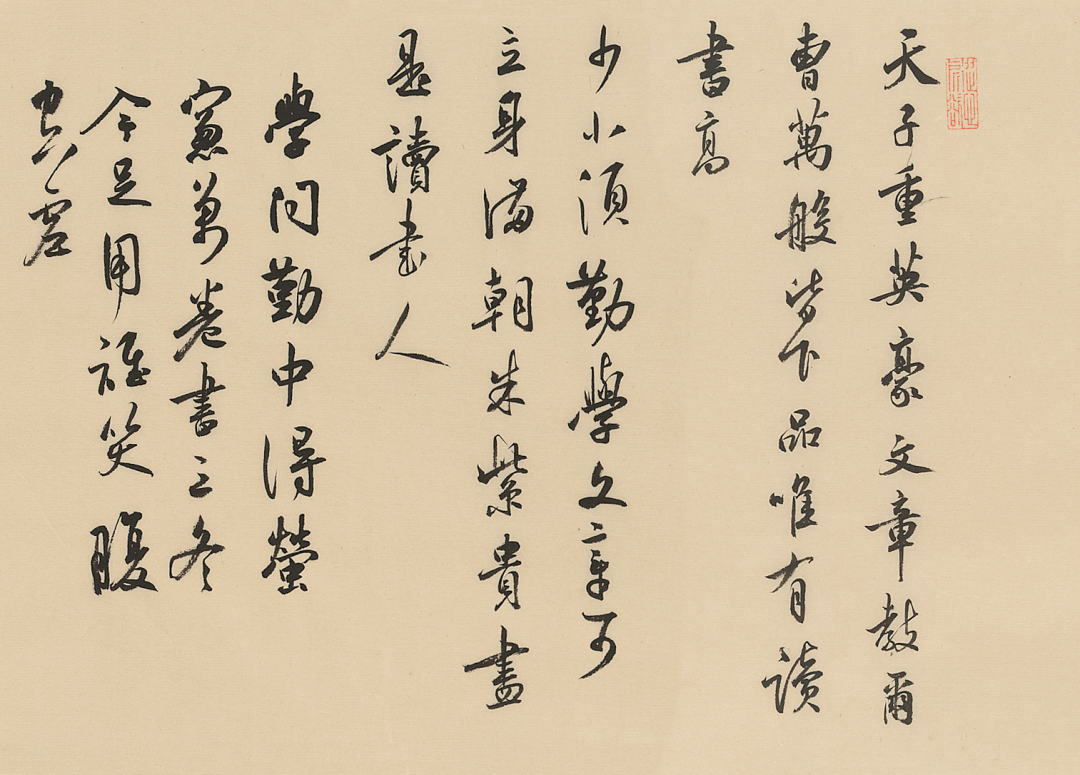 天子重英豪文章教爾
曹萬般皆下品唯有讀
書高
少小須勤學文章可
立身滿朝朱紫貴盡
是讀書人
學問勤中得螢
窻萬卷書三冬
今足用誰笑腹
空虛